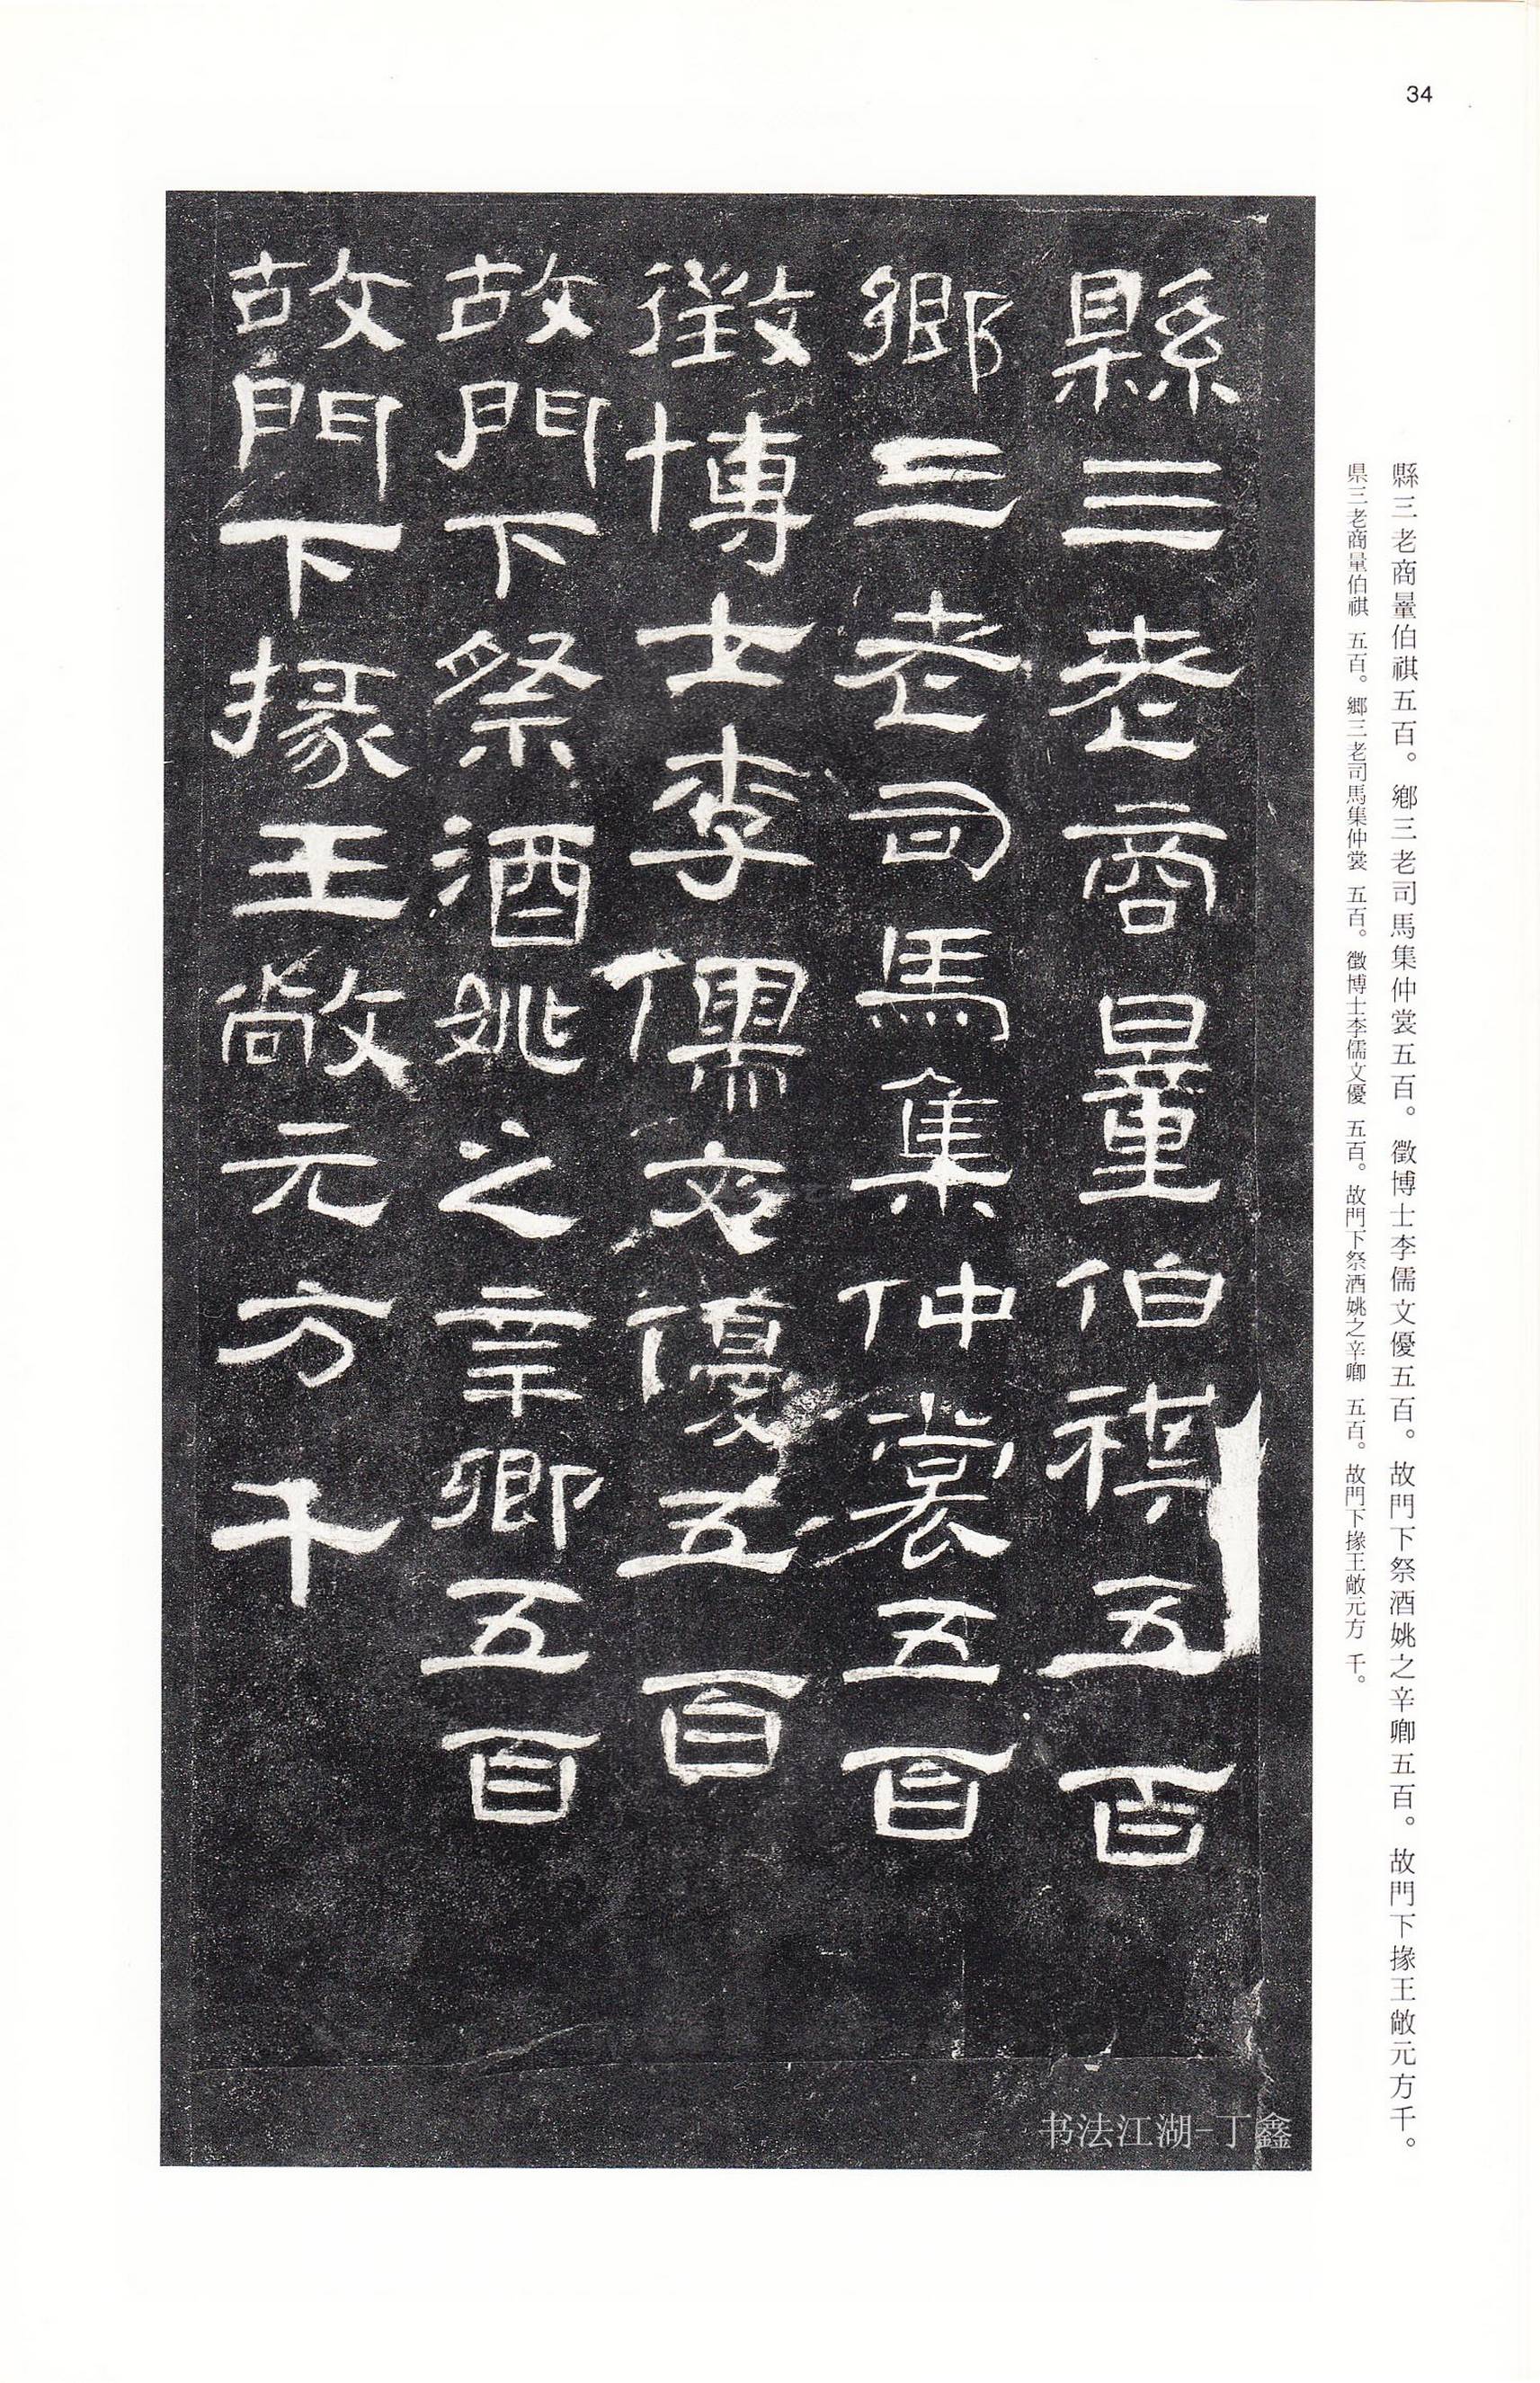 34
縣三老商量伯祺五百。鄉三老司馬集仲裳五百。徵博士李儒文優五百。故門下祭酒姚之辛卿五百。故門下掾王敞元方千。
県三老商量伯祺 五百。郷三老司馬集仲裳 五百。徵博士李儒文優 五百。故門下祭酒姚之辛卿 五百。故門下掾王敞元方 千。
縣三老商量伯祺五百
鄉三老司馬集仲裳五百
徵博士李儒文優五百
故門下祭酒姚之辛卿五百
故門下掾王敞元方千
书法江湖-丁鑫